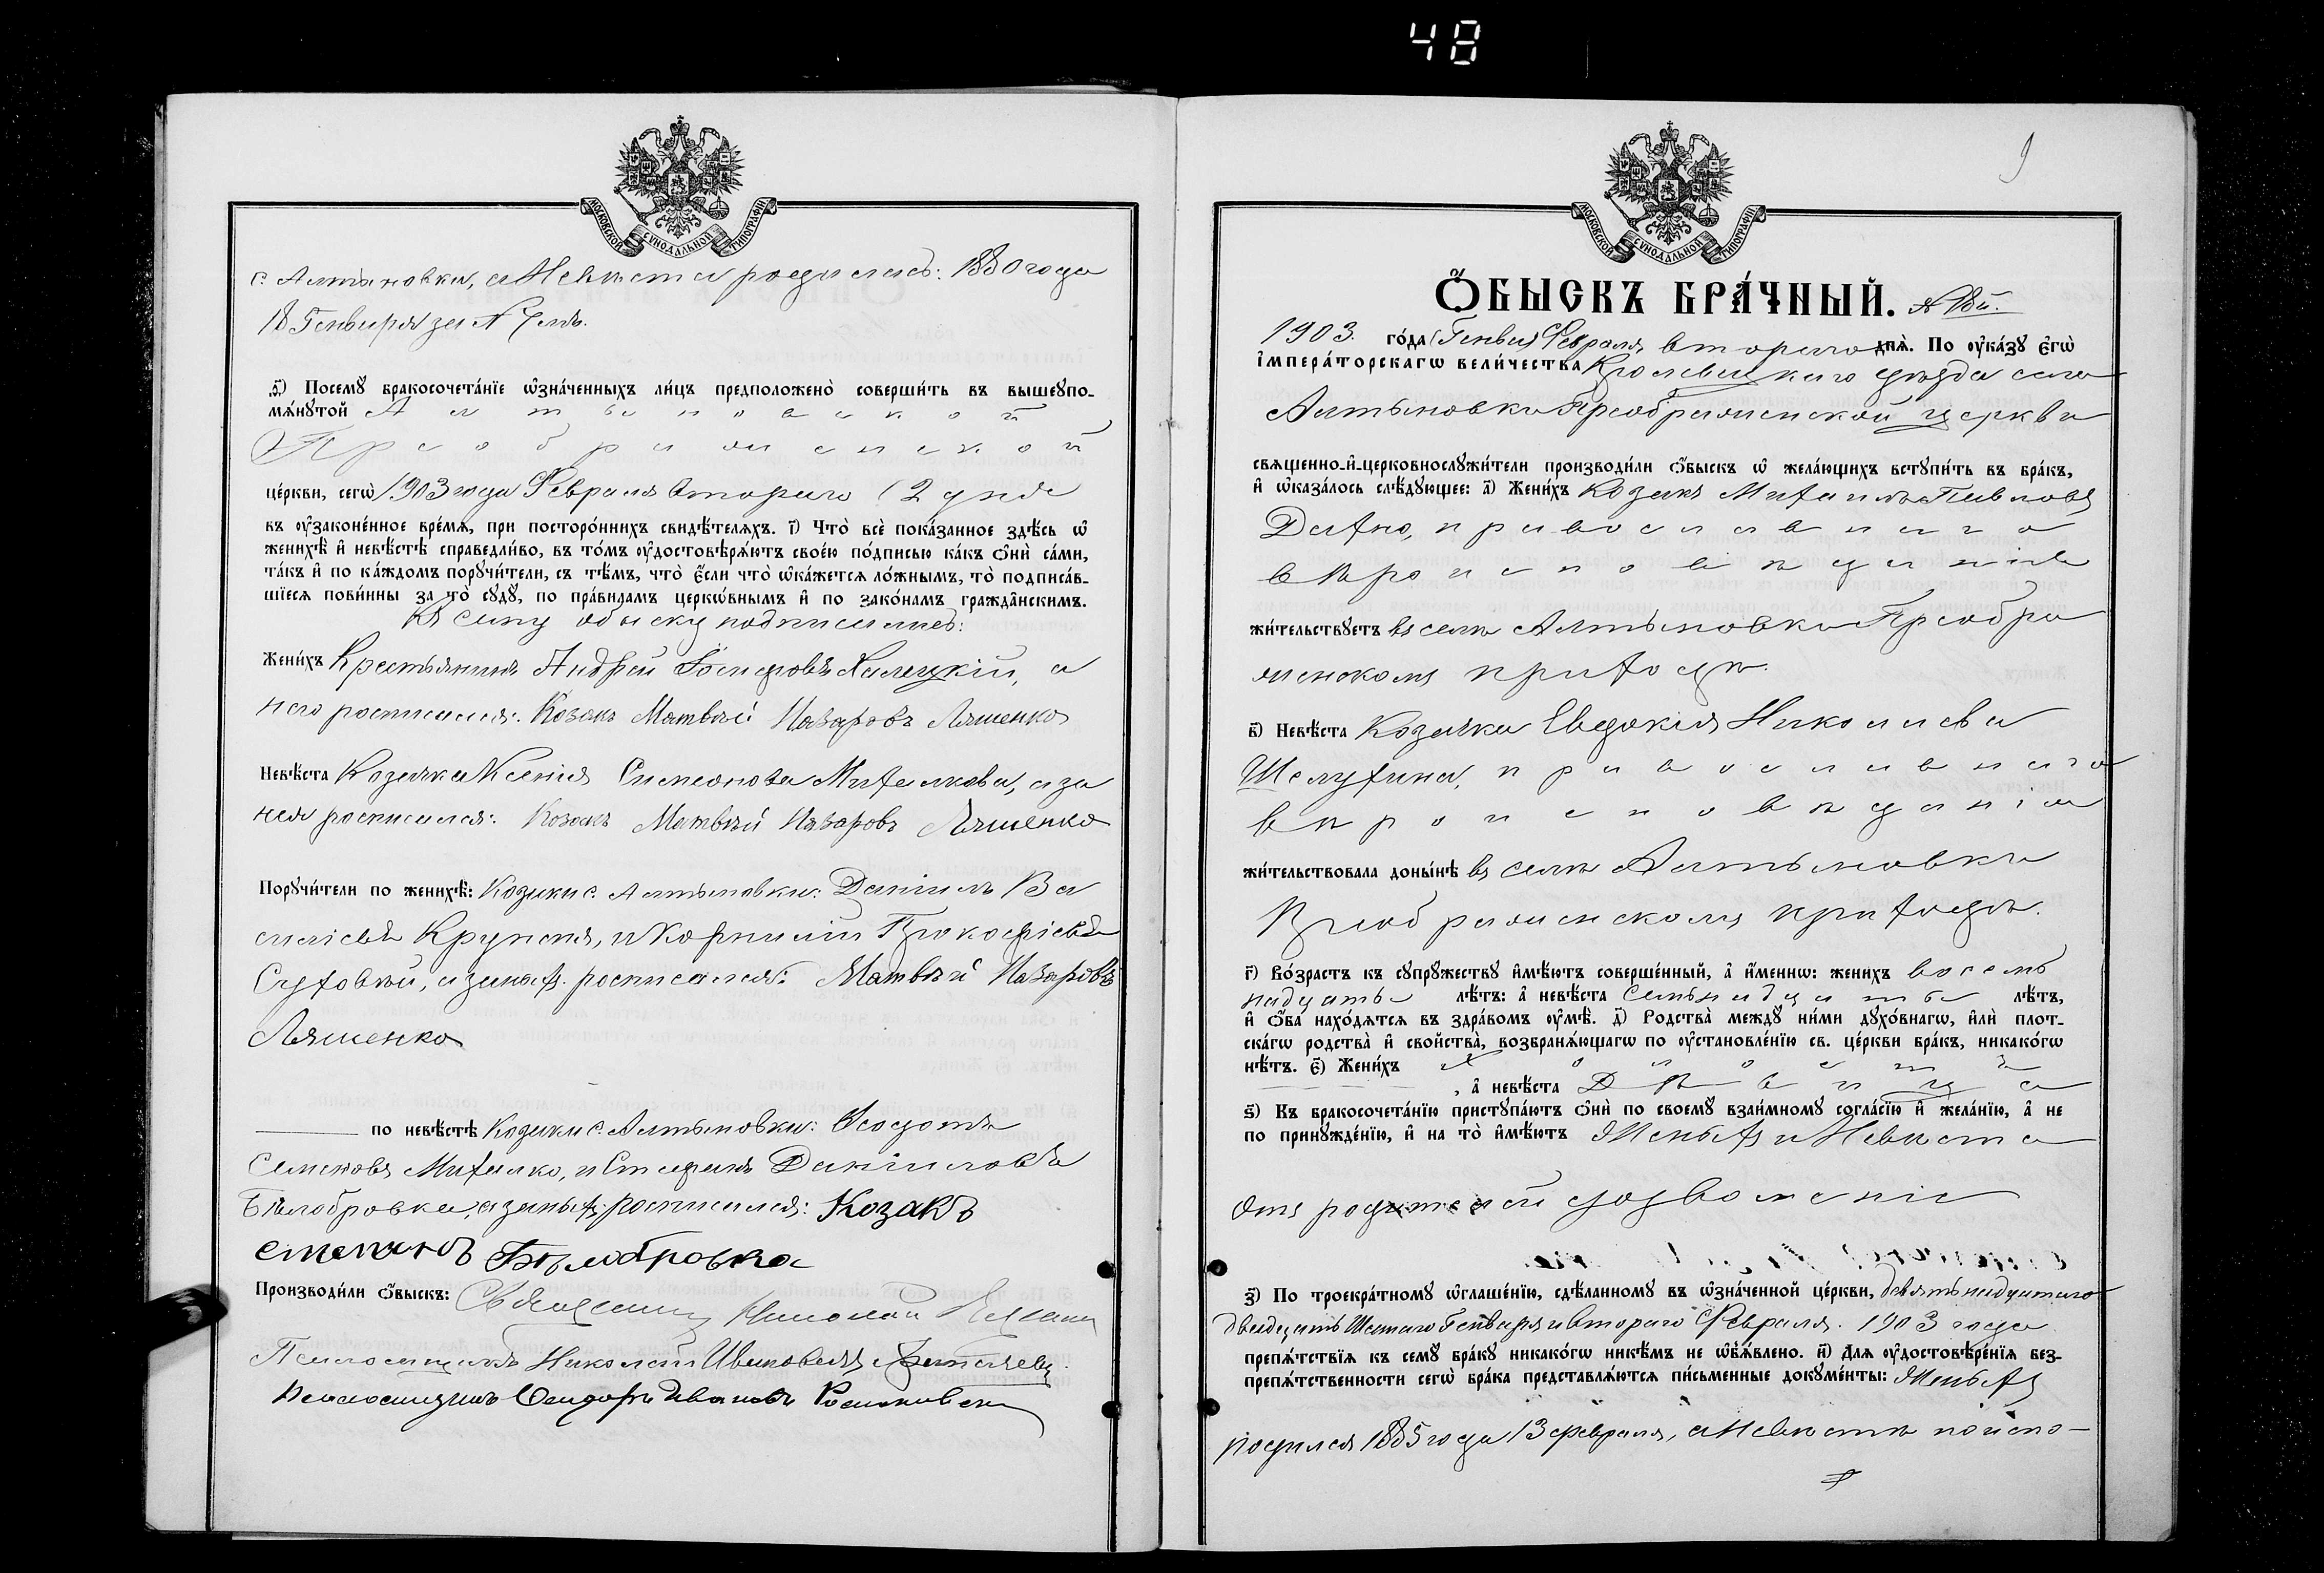 48
МОСКОВСКОЙ СУНОДАЛЬНОЙ ТИПОГРАФІИ
с. Алтыновки, а Невѣста родилась: 1880 года
18 Генваря за №
д҃) Посемꙋ бракосочета́нїе ѡ҆зна́ченныхъ ли́цъ предположено̀ соверши́ть въ вышеꙋпо-
мѧ́нꙋтой Алтыновской
Преображенской
це́ркви, сегѡ̀ 1903 года Февраля втораго (2 дня
въ ᲂу҆законе́нное вре́мѧ, при посторо́ннихъ свидѣ́телѧхъ. і҃) Что̀ всѐ пока́занное здѣ́сь ѡ҆
женихѣ̀ и҆ невѣ́стѣ справедли́во, въ то́мъ ᲂу҆достовѣрѧ́ютъ свое́ю по́дписью ка́къ ѻ҆нѝ са́ми,
та́къ и҆ по ка́ждомъ порꙋчи́тели, съ тѣ́мъ, что̀ є҆́сли что̀ ѡ҆ка́жетсѧ ло́жнымъ, то̀ подписа́в-
шїесѧ пови́нны за то̀ сꙋдꙋ̀, по пра́виламъ церкѡ́внымъ и҆ по зако́намъ гражда̑нскимъ.
Къ сему обыску подписались:
Жени́хъ Крестьянинъ Андрей Іосифовъ Халецкій, а
него росписался: Козакъ Матвѣй Назаровъ Ляшенко
Невѣ́ста Козачка Ксенія Симеонова Михалкова, а за
нея росписался: Козакъ Матвѣй Назаровъ Ляшенко
Порꙋчи́тели по женихѣ̀: Козаки с. Алтыновки: Даніилъ Ва
силіевъ Крупеня, и Корнилій Прокофіевъ
Суховѣй, а за нихъ росписался: Матвѣй Назаровъ
Ляшенко
по невѣ́стѣ Козаки с. Алтыновки: Ѳеодотъ
Семеновъ Михалко, и Стефанъ Даніиловъ
Бѣлобровка, а за нихъ росписался: Козакъ
степанъ Бѣлобровка
Производи́ли ѻ҆́быскъ: Священникъ Николай
Псаломщикъ Николай Ивановичъ
Псаломщикъ Исидоръ Ивановъ
9
МОСКОВСКОЙ СУНОДАЛЬНОЙ ТИПОГРАФІИ
Ѻ҆́БЫСКЪ БРА́ЧНЫЙ. № 18й.
1903. го́да (Генваря) Февраля втораго днѧ̀. По ᲂу҆ка́зꙋ є҆гѡ̀
і҆мпера́торскагѡ вели́чества Кролевецкаго уѣзда села
Алтыновки Преображенской церкви
свѧщенно-и҆-церковнослꙋжи́тели производи́ли ѻ҆́быскъ ѡ҆ жела́ющихъ встꙋпи́ть въ бра́къ,
и҆ ѡ҆каза́лось слѣ́дꙋющее: а҃) Жени́хъ Козакъ Михаилъ Павловъ
Дахно, православнаго
вѣроисповѣданія
жи́тельствꙋетъ въ селѣ Алтыновки Преобра
женскомъ приходѣ.
в҃) Невѣ́ста Козачка Евдокія Николаева
Шелухина, православнаго
вѣроисповѣданія
жи́тельствовала доны́нѣ въ селѣ Алтыновки
Преображенскомъ приходѣ.
г҃) Во́зрастъ къ сꙋпрꙋ́жествꙋ и҆мѣ́ютъ соверше́нный, а҆ и҆́менно: жени́хъ восемь
надцать лѣ́тъ: а҆ невѣ́ста семьнадцать лѣ́тъ,
и҆ ѻ҆́ба нахо́дѧтсѧ въ здра́вомъ ᲂу҆мѣ̀. д҃) Родства̀ междꙋ ни́ми дꙋхо́внагѡ, и҆лѝ плот-
ска́гѡ родства̀ и҆ сво́йства, возбранѧ́ющагѡ по ᲂу҆становле́нїю св. це́ркви бра́къ, никако́гѡ
нѣ́тъ. є҃) Жени́хъ холостъ
, а҆ невѣ́ста Дѣвица
ѕ҃) Къ бракосочета́нїю пристꙋпа́ютъ ѻ҆нѝ по своемꙋ̀ взаи́мномꙋ согла́сїю и҆ жела́нїю, а҆ не
по принꙋжде́нїю, и҆ на то̀ и҆мѣ́ютъ Женихъ и Невѣста
отъ родителей дозволеніе
з҃) По троекра́тномꙋ ѡ҆глаше́нїю, сдѣ́ланномꙋ въ ѡ҆зна́ченной це́ркви, девятьнадцатаго
двадцать Шестаго Генваря и втораго Февраля. 1903 года
препѧ́тствїѧ къ семꙋ̀ бра́кꙋ никако́гѡ никѣ́мъ не ѡ҆бѧ́влено. и҃) Длѧ ᲂу҆достовѣре́нїѧ без-
препѧ́тственности сегѡ̀ бра́ка представлѧ́ютсѧ пи́сьменные докꙋме́нты: Женихъ
родился 1885 года 13 февраля, а Невѣста по испо-